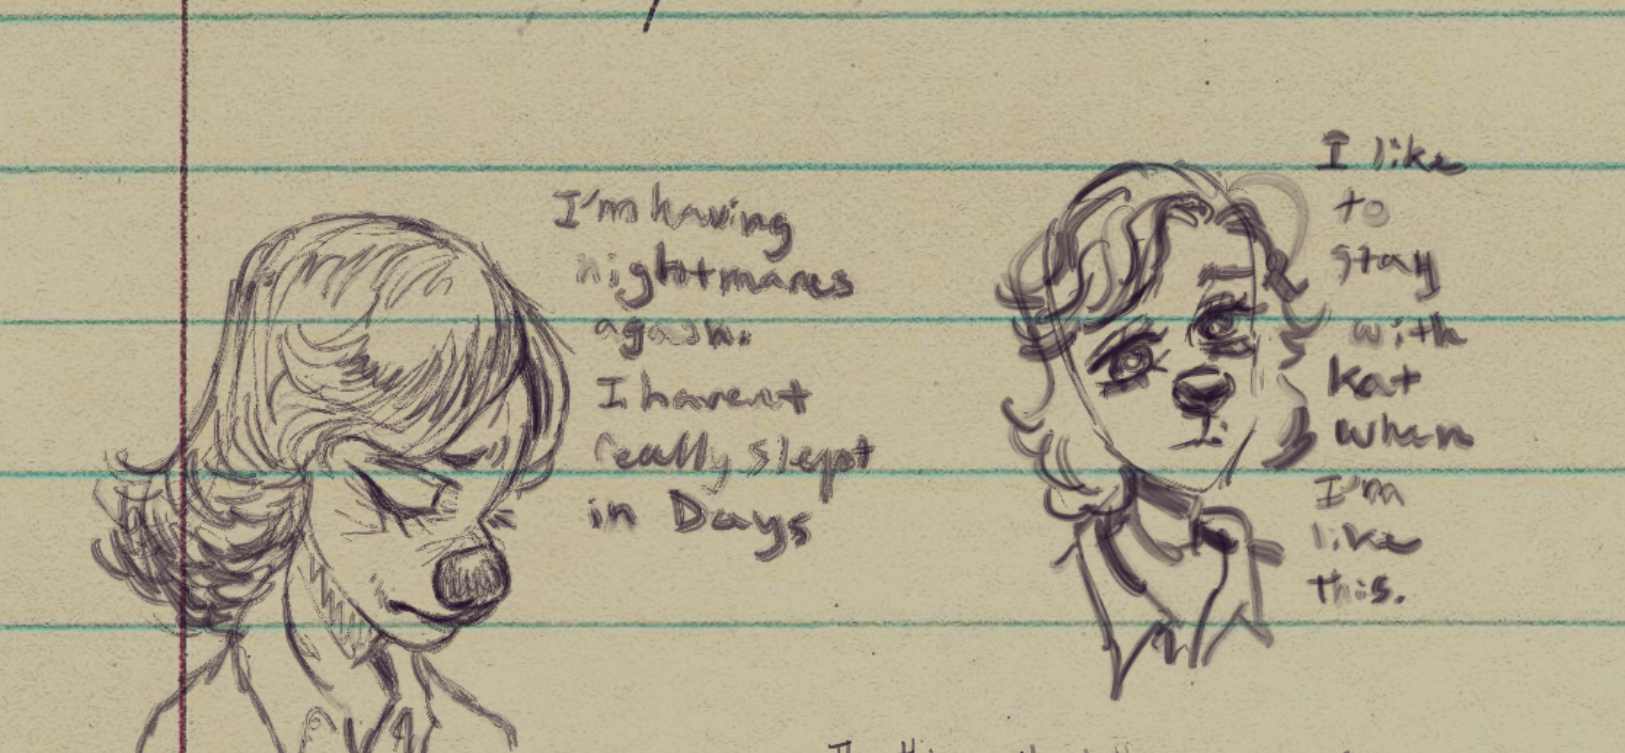 I'm having
nightmares
again.
I havent
really slept
in Days
I like
to
stay
with
Kat
when
I'm
like
this.